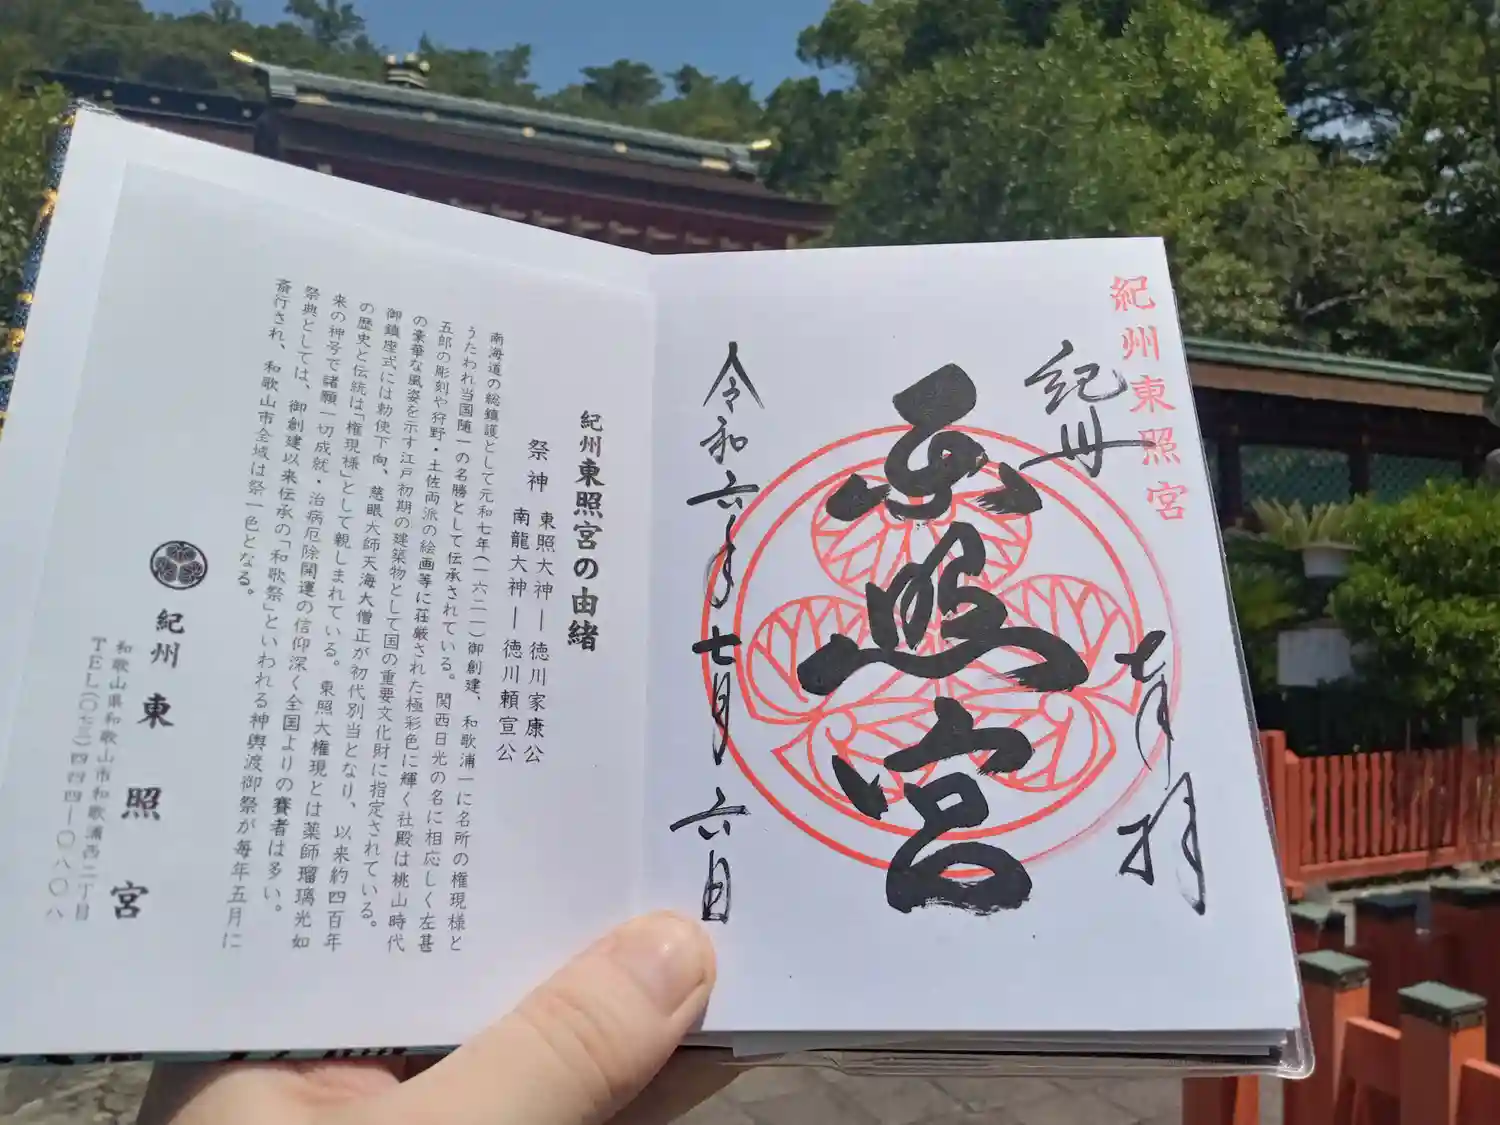 紀州東照宮
紀州
奉拝
東照宮
令和六年
七月
六日
紀州東照宮の由緒
祭神 東照大神―徳川家康公
南龍大神―徳川頼宣公
南海道の総鎮護として元和七年(一六二一)御創建、和歌浦一に名所の権現様と
うたわれ当国随一の名勝として伝承されている。関西日光の名に相応しく左甚
五郎の彫刻や狩野・土佐両派の絵画等に荘厳された極彩色に輝く社殿は桃山時代
の豪華な風姿を示す江戸初期の建築物として国の重要文化財に指定されている。
御鎮座式には勅使下向、慈眼大師天海大僧正が初代別当となり、以来約四百年
の歴史と伝統は「権現様」として親しまれている。東照大権現とは薬師瑠璃光如
来の神号で諸願一切成就・治病厄除開運の信仰深く全国よりの賽者は多い。
祭典としては、御創建以来伝承の「和歌祭」といわれる神輿渡御祭が毎年五月に
斎行され、和歌山市全域は祭一色となる。
紀州東照宮
和歌山県和歌山市和歌浦西二丁目
TEL(〇七三)四四四―〇八〇八